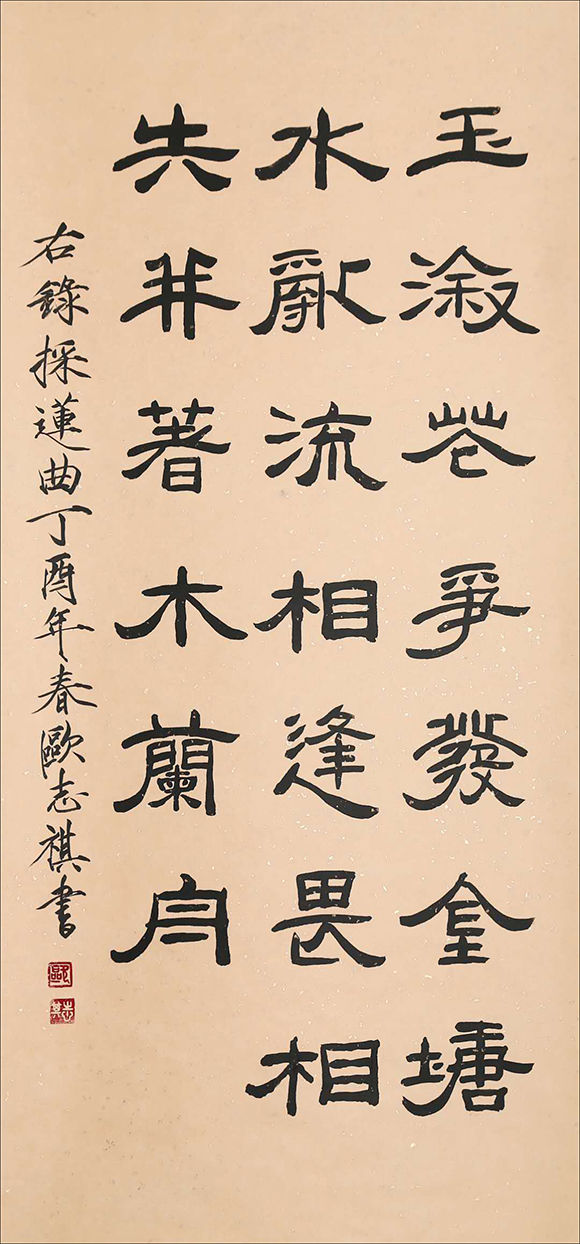 玉溆花爭發金塘
水亂流相逢畏相
失并著木蘭舟
右錄採蓮曲丁酉年春歐志祺書
歐
志祺